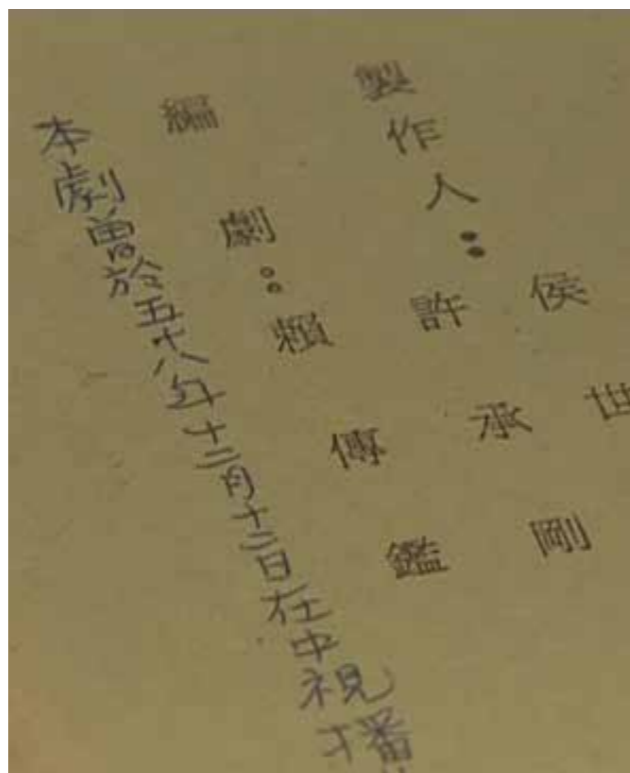 侯世
製作人：許承剛
編劇：賴傳鑑
本劇曾於五十八年十二月十二日在中視播